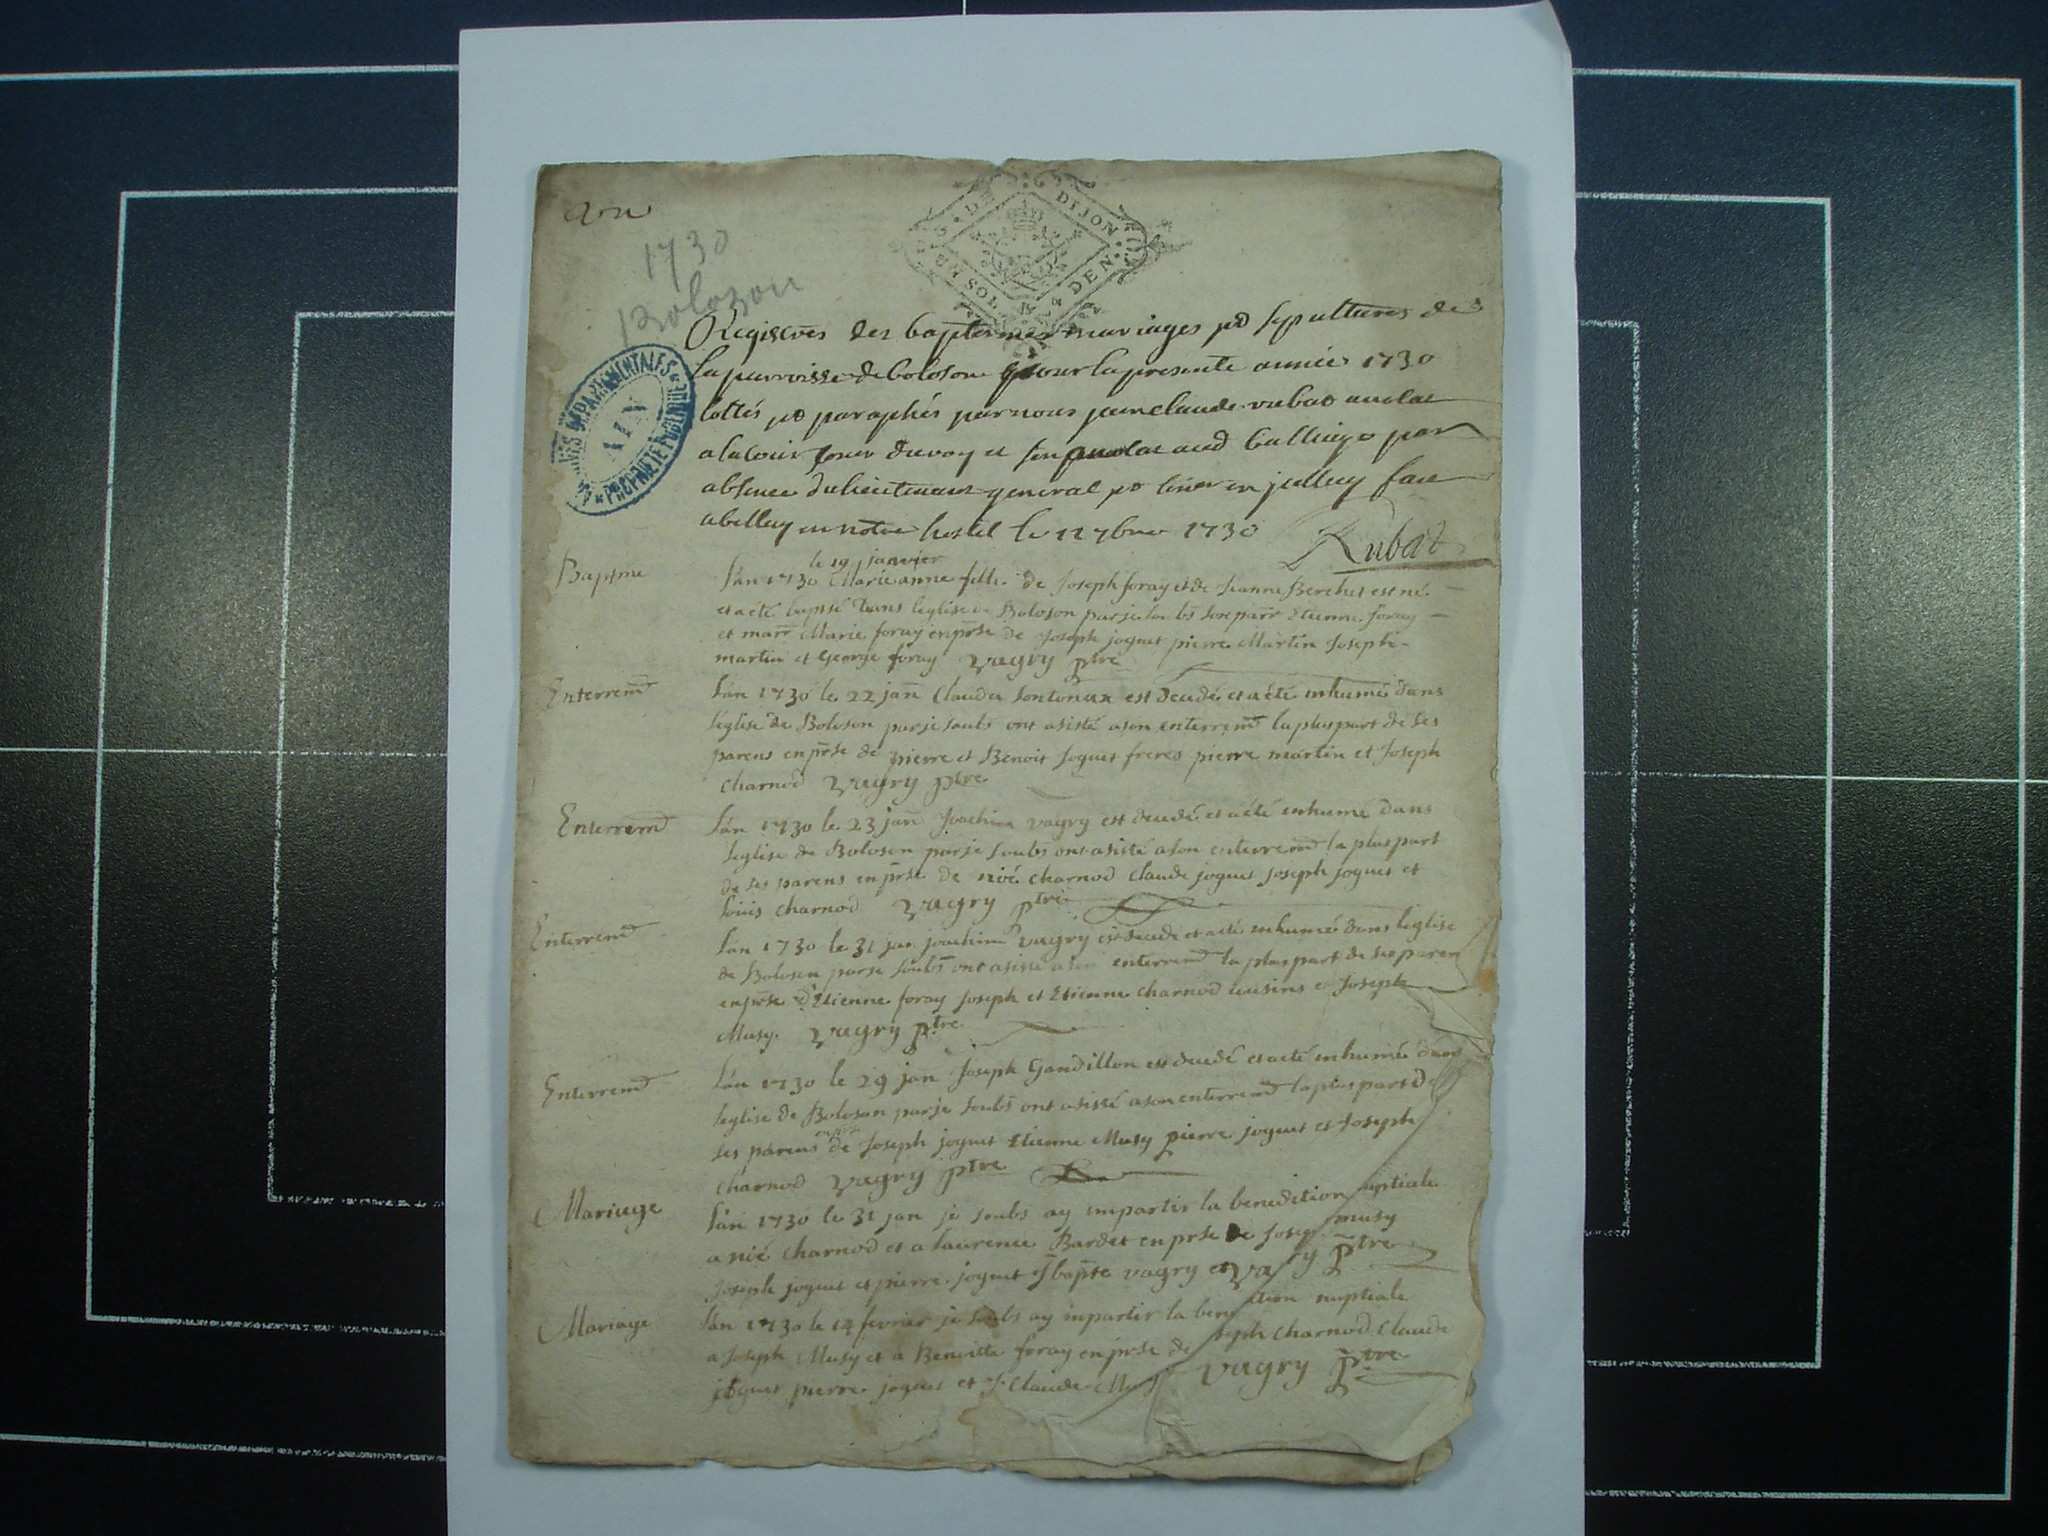 1730
Bolozon
G · DE DIJON
SOL DEN
ARCHIVES DEPARTEMENTALES
AIN
PROPRIETE PUBLIQUE
Registres des baptesmes mariages et sepultures de
la parroisse de boloson pour la presente année 1730
cottés et paraphés par nous jean claude rubat
a la cour
absence du lieutenant general et
a bellay en notre hostel le 12 7bre 1730 Rubat
le 19 janvier
Baptme L'án 1730 Marie anne fille de Joseph foray et de Jeanne Berchet est né
et a été baptsé dans l'eglise de Boloson par je soubs son parr Etienne foray
et marr Marie foray en prse de Joseph joguet pierre Martin Joseph
martin et George foray Vagry ptre
Enterremt L'án 1730 le 22 jan Clauda est decedé et a été inhumé dans
l'eglise de Boloson par je soubs ont asisté a son enterremt la plus part de ses
parens en prse de pierre et Benoit Joguet freres pierre martin et Joseph
charnod Vagry ptre
Enterremt L'án 1730 le 23 jan Joachim vagry est decedé et a été inhumé dans
l'eglise de Boloson par je soubs ont asisté a son enterremt la plus part
de ses parens en prse de noé charnod Claude joguet joseph joguet et
louis charnod Vagry ptre
Enterremt L'án 1730 le 31 jan joachim vagry est decedé et a été inhumé dans l'eglise
de Boloson par je soubs ont asisté a son enterremt la plus part de ses paren
en prse d'Etienne foray Joseph et Etienne charnod cusins et Joseph
Musy. Vagry ptre
Enterremt L'án 1730 le 29 jan Joseph Gandillon est decedé et a été inhumé dans
l'eglise de Boloson par je soubs ont asisté a son enterremt la plus part de
ses parens en prse de Joseph joguet Etienne Musy pierre joguet et Joseph
charnod Vagry ptre
Mariage L'án 1730 le 31 jan je soubs ay impartir la benedition nuptiale
a noé charnod et a laurence Bardet en prse de Josep musy
Joseph joguet et pierre joguet J bapte vagry et Vagry ptre
Mariage L'án 1730 le 14 fevrier je soubs ay impartir la benedition nuptiale
a Joseph Musy et a Benoitte foray en prse de Joseph charnod Claude
joguet pierre joguet et J Claude Musy Vagry ptre